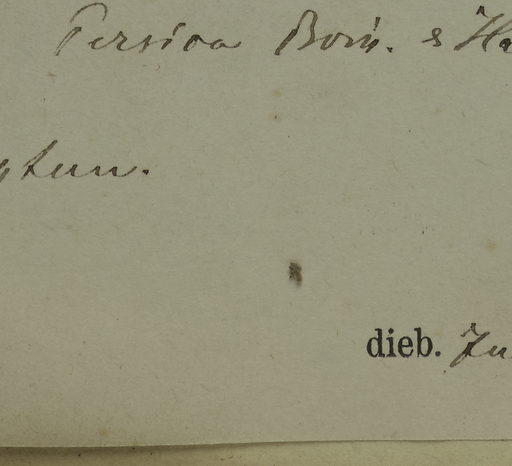 Persica Boiss. & Ha
ptum.
dieb. Ju